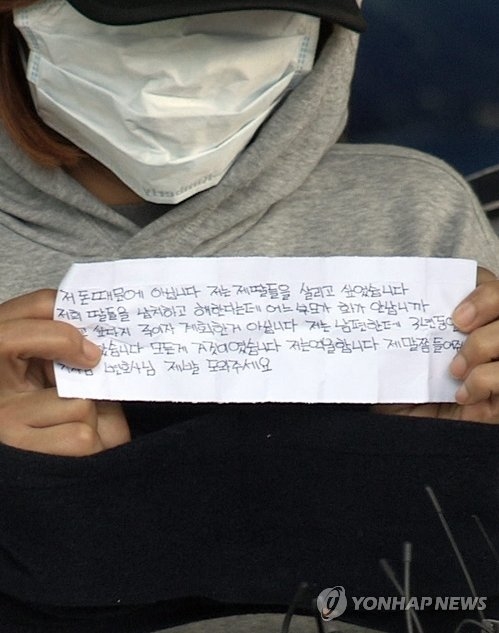 저 돈 때문에 아닙니다 저는 제 딸들을 살리고 싶었습니다
저희 딸들을 납치하고 해한다는데 어느 부모가 화가 안납니까
싶다지 계획한거 아닙니다 저는 남편한테 3년동안
모든게 거짓이었습니다 저는 억울합니다 제 말쫌 들어주
변호사님 제발 도와주세요
YONHAP NEWS